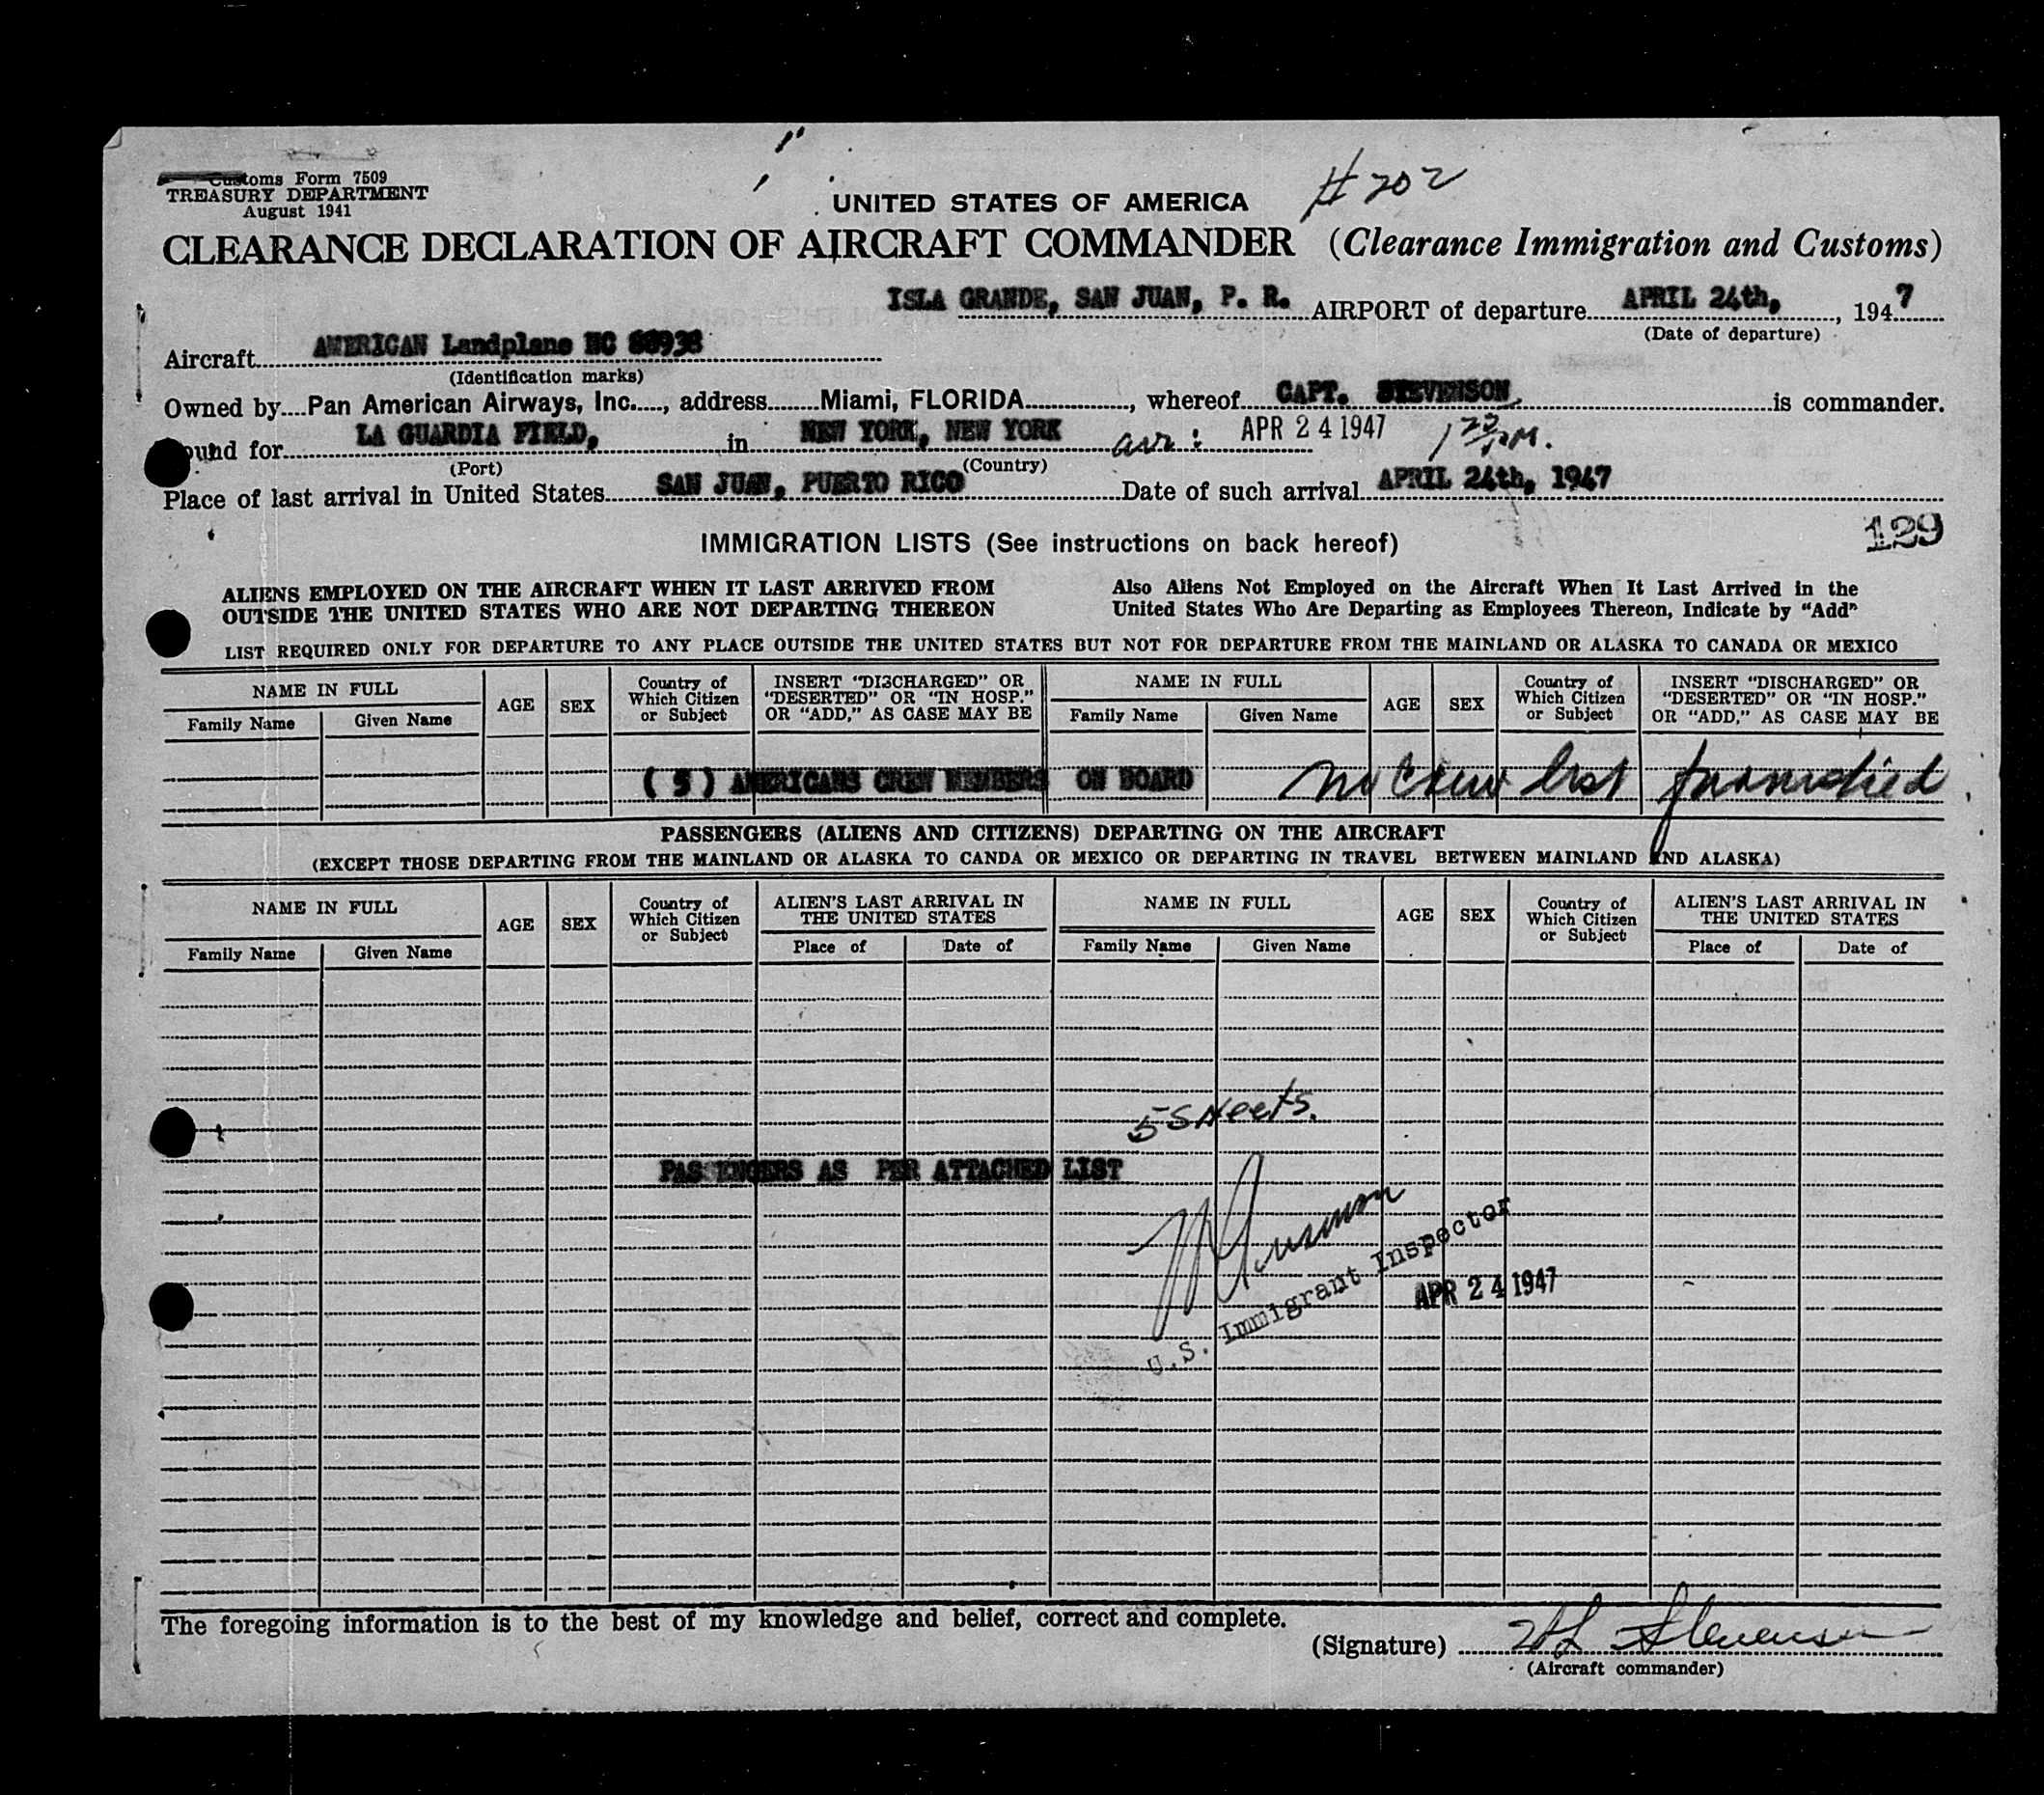 Customs Form 7509
TREASURY DEPARTMENT
August 1941
UNITED STATES OF AMERICA
#202
CLEARANCE DECLARATION OF AIRCRAFT COMMANDER (Clearance Immigration and Customs)
ISLA GRANDE, SAN JUAN, P. R. AIRPORT of departure APRIL 24th, , 1947
(Date of departure)
Aircraft AMERICAN Landplane NC
(Identification marks)
Owned by Pan American Airways, Inc. , address Miami, FLORIDA , whereof CAPT. STEVENSON is commander.
ound for LA GUARDIA FIELD, in NEW YORK, NEW YORK arr: APR 24 1947 1 PM.
(Port) (Country)
Place of last arrival in United States SAN JUAN, PUERTO RICO Date of such arrival APRIL 24th, 1947
129
IMMIGRATION LISTS (See instructions on back hereof)
ALIENS EMPLOYED ON THE AIRCRAFT WHEN IT LAST ARRIVED FROM
OUTSIDE THE UNITED STATES WHO ARE NOT DEPARTING THEREON
Also Aliens Not Employed on the Aircraft When It Last Arrived in the
United States Who Are Departing as Employees Thereon, Indicate by "Add"
LIST REQUIRED ONLY FOR DEPARTURE TO ANY PLACE OUTSIDE THE UNITED STATES BUT NOT FOR DEPARTURE FROM THE MAINLAND OR ALASKA TO CANADA OR MEXICO
NAME IN FULL
Family Name Given Name
AGE
SEX
Country of
Which Citizen
or Subject
INSERT "DISCHARGED" OR
"DESERTED" OR "IN HOSP."
OR "ADD," AS CASE MAY BE
NAME IN FULL
Family Name Given Name
AGE
SEX
Country of
Which Citizen
or Subject
INSERT "DISCHARGED" OR
"DESERTED" OR "IN HOSP."
OR "ADD," AS CASE MAY BE
( 5 ) AMERICANS CREW MEMBERS ON BOARD No Crew list furnished
PASSENGERS (ALIENS AND CITIZENS) DEPARTING ON THE AIRCRAFT
(EXCEPT THOSE DEPARTING FROM THE MAINLAND OR ALASKA TO CANDA OR MEXICO OR DEPARTING IN TRAVEL BETWEEN MAINLAND AND ALASKA)
NAME IN FULL
Family Name Given Name
AGE
SEX
Country of
Which Citizen
or Subject
ALIEN'S LAST ARRIVAL IN
THE UNITED STATES
Place of Date of
NAME IN FULL
Family Name Given Name
AGE
SEX
Country of
Which Citizen
or Subject
ALIEN'S LAST ARRIVAL IN
THE UNITED STATES
Place of Date of
5 Sheets.
PASSENGERS AS PER ATTACHED LIST
U.S. Immigrant Inspector
APR 24 1947
The foregoing information is to the best of my knowledge and belief, correct and complete.
(Signature) Stevenson
(Aircraft commander)